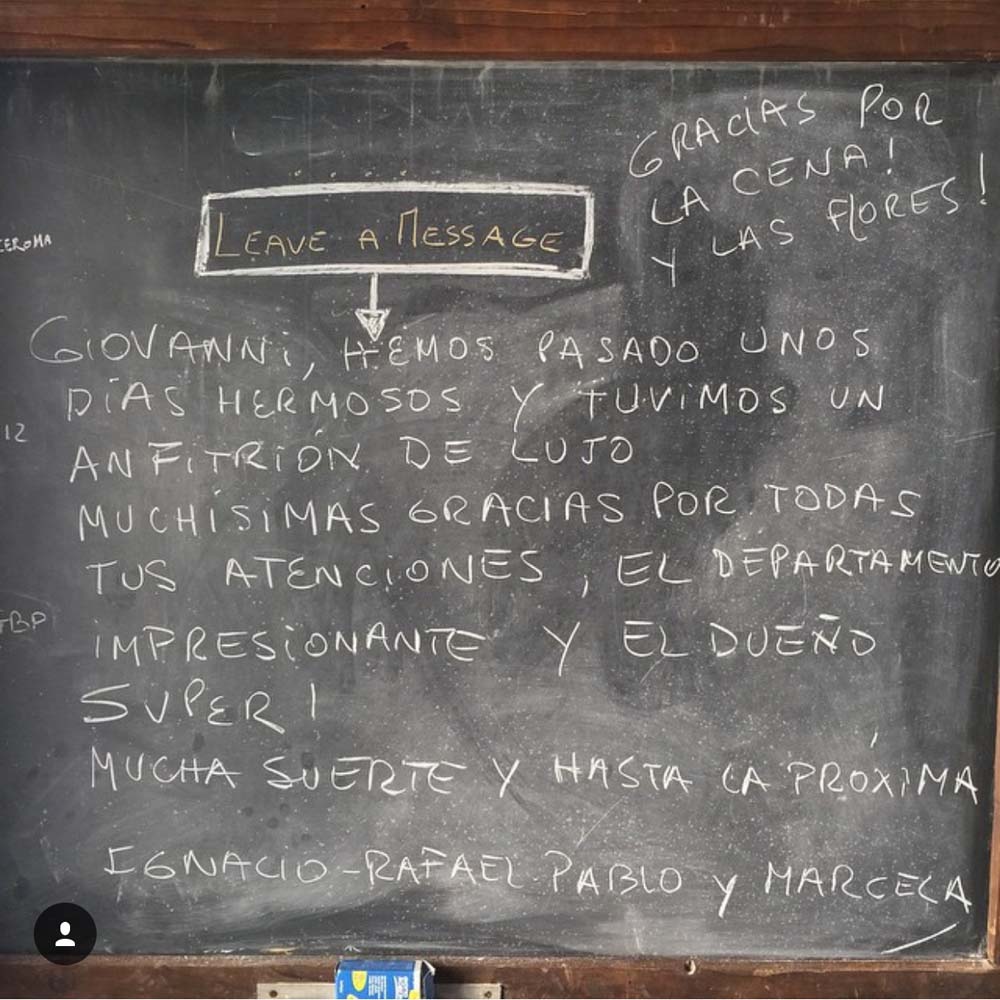 GRACIAS POR
LA CENA!
Y LAS FLORES!
LEAVE A MESSAGE
GIOVANNI, HEMOS PASADO UNOS
DÍAS HERMOSOS Y TUVIMOS UN
ANFITRIÓN DE LUJO
MUCHÍSIMAS GRACIAS POR TODAS
TUS ATENCIONES, EL DEPARTAMENTO
IMPRESIONANTE Y EL DUEÑO
SUPER!
MUCHA SUERTE Y HASTA LA PRÓXIMA
IGNACIO-RAFAEL-PABLO Y MARCELA
12